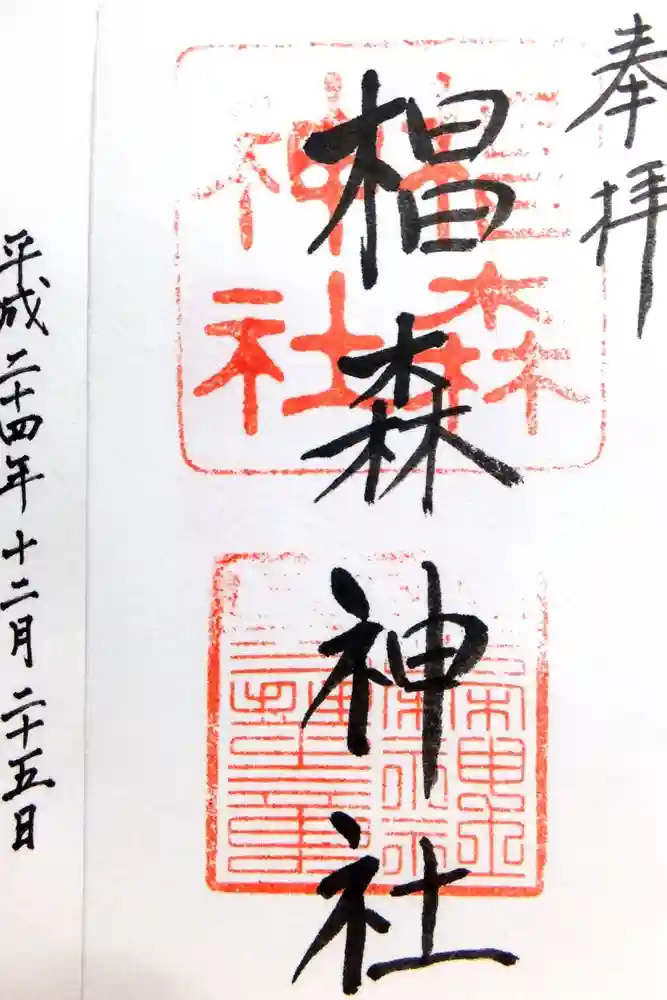 奉拝
椙森神社
椙森
神社
平成二十四年十二月二十五日